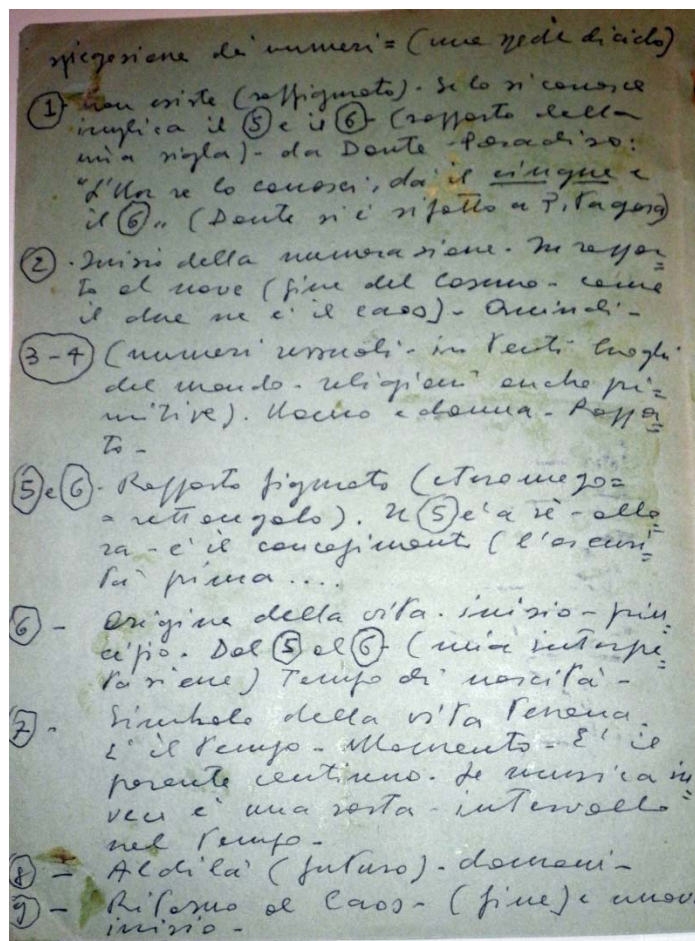 spiegazione dei numeri = (una specie di ciclo)
1 - non esiste (raffigurato). Se lo si conosce
implica il 5 e il 6 - (rapporto della
mia sigla) - da Dante - Paradiso:
"L'Un se lo conosci, dà il cinque e
il 6" (Dante si è rifatto a Pitagora)
2 - Inizio della numerazione. In rappor=
to al nove (fine del Cosmo - come
il due ne è il caos) - Quindi -
3-4 (numeri sessuali - in tanti luoghi
del mondo - religioni anche pri=
mitive). Uomo e donna - Rappor=
to -
5 e 6 - Rapporto figurato (
= rettangolo). Il 5 è a sè - allo=
ra - è il concepimento (l'oscuri=
tà prima ....
6 - origine della vita - inizio - prin=
cipio. Dal 5 al 6 - (mia interpre=
tazione) Tempo di nascita -
7 - Simbolo della vita terrena.
È il tempo - Momento - È il
presente continuo. In musica in=
vece è una sosta - intervallo
nel tempo -
8 - Aldilà (futuro) - domani -
9 - Ritorno al Caos - (fine) e nuovo
inizio -